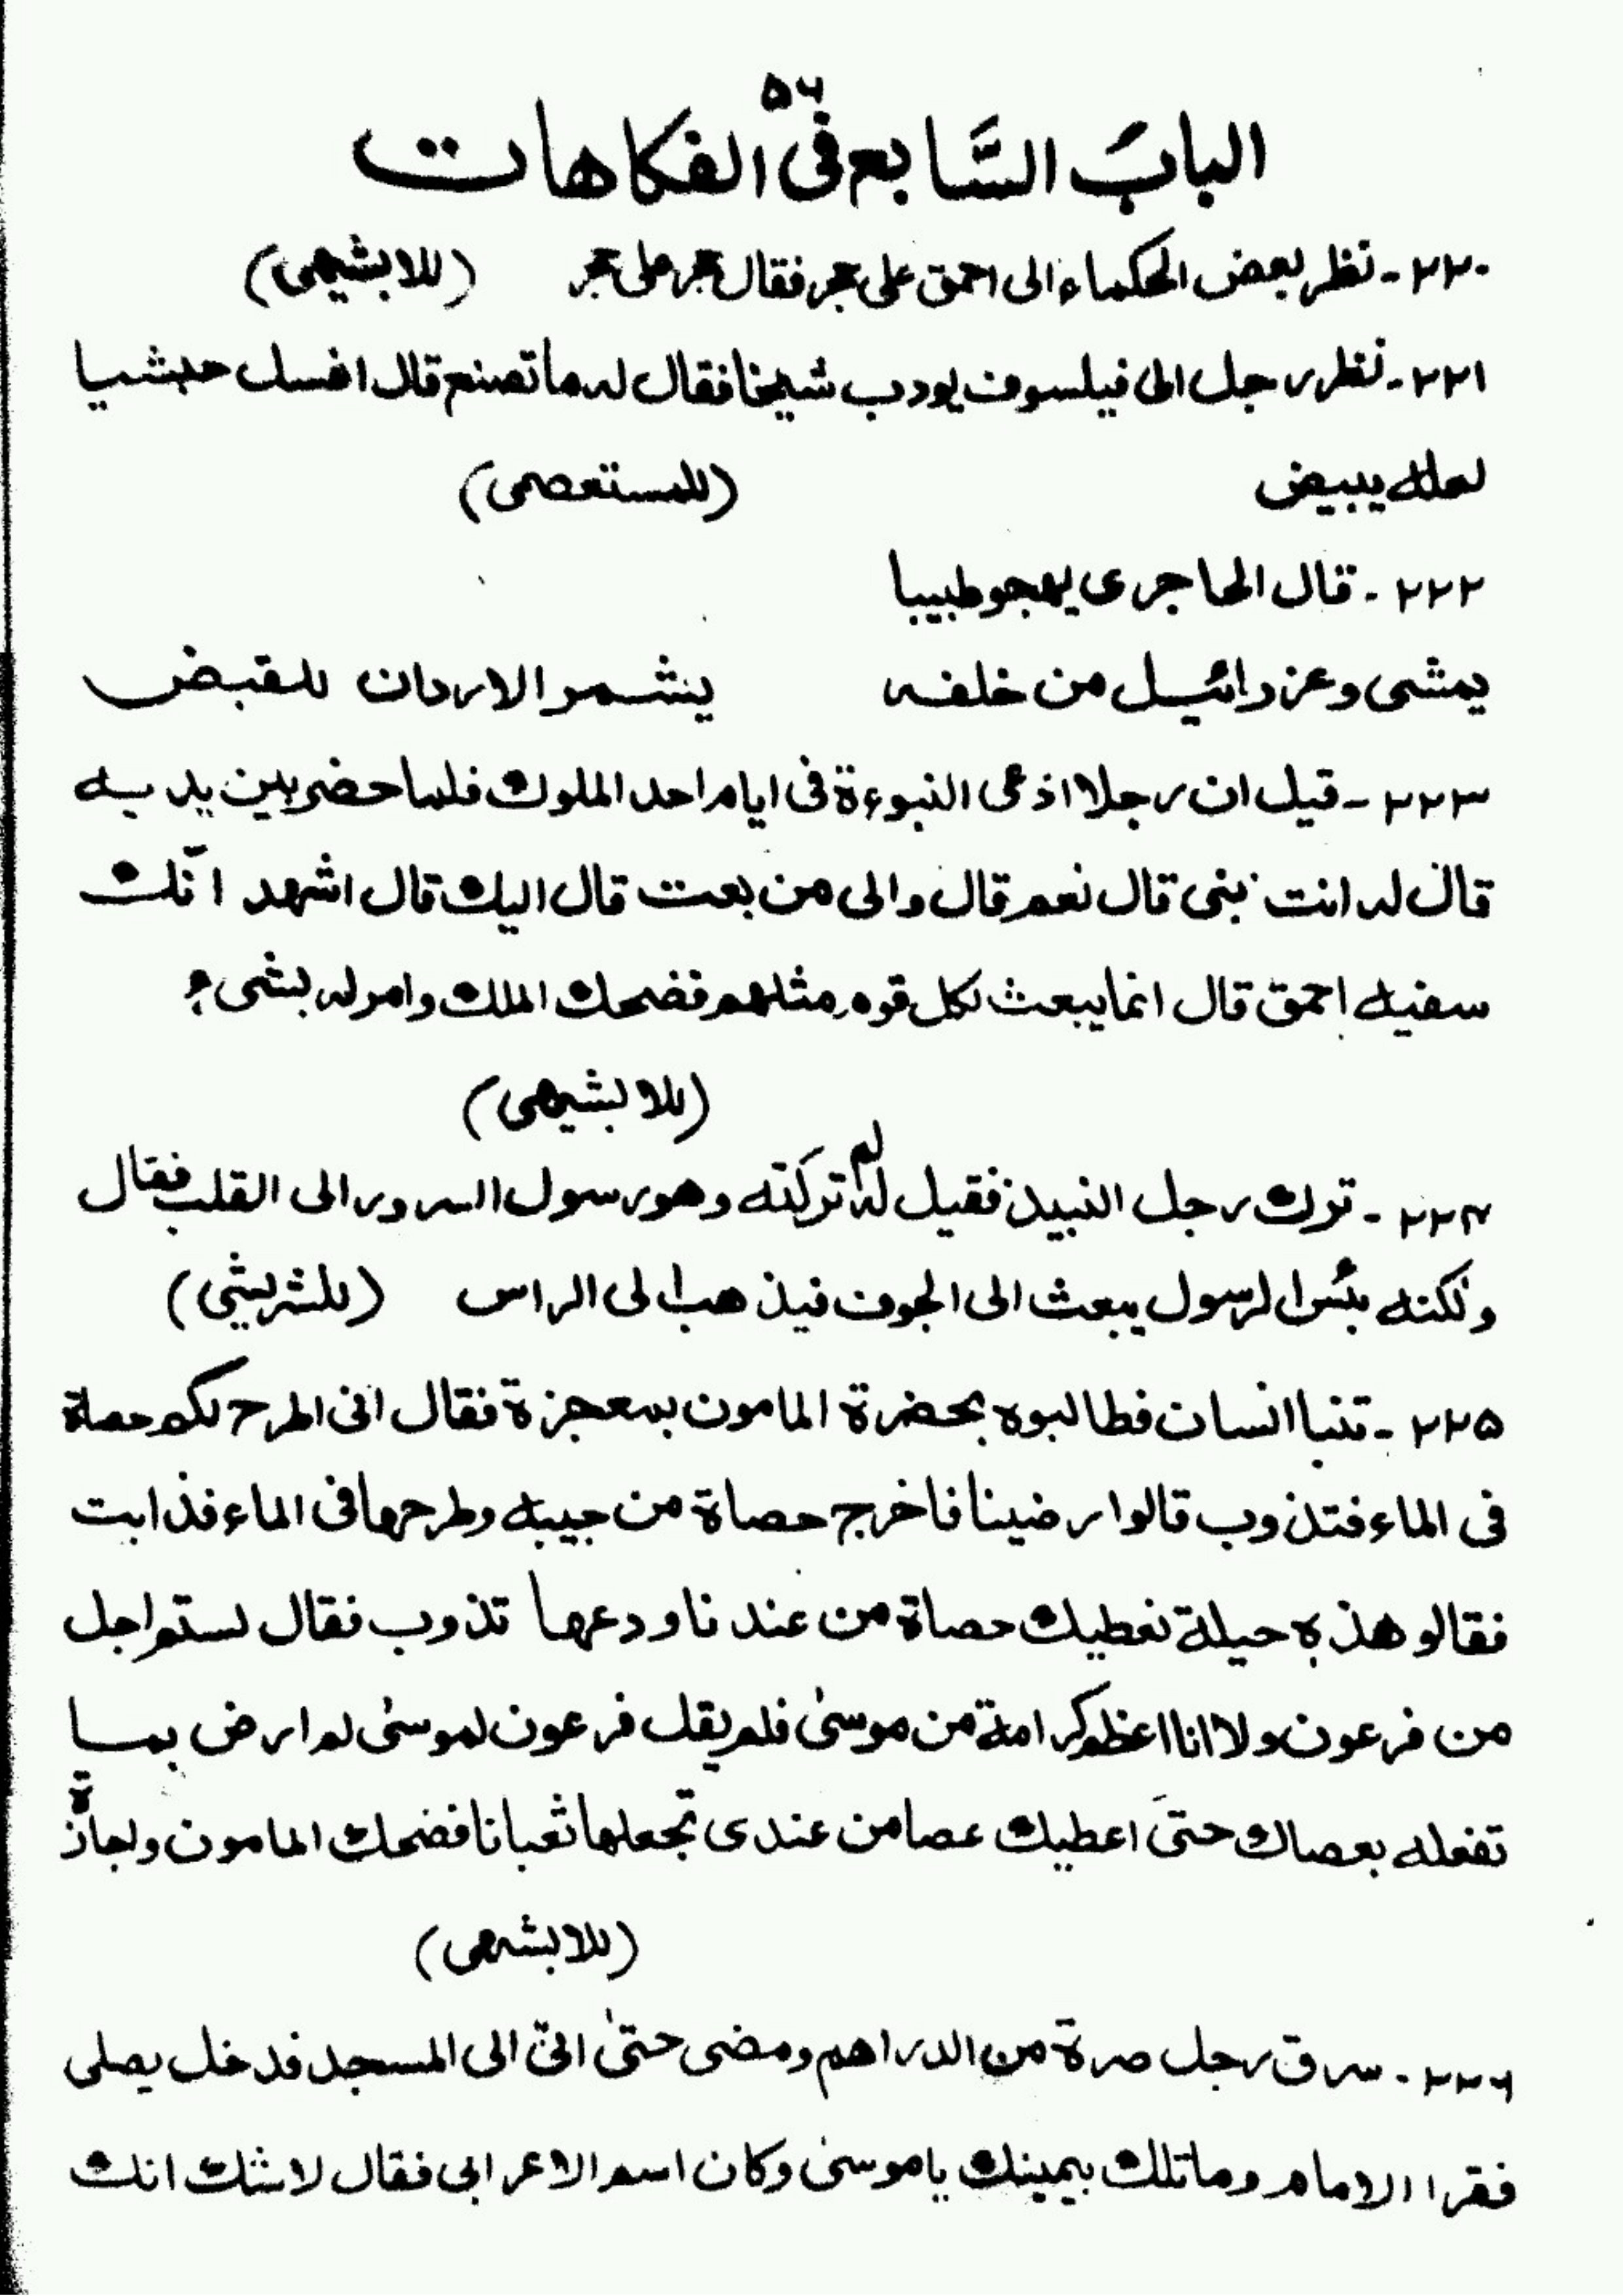 ۵۶
الباب السَّابع فى الفكاهات
۲۲۰ - نظر بعض الحكماء الى احمق على حجر فقال حجر على حجر (للابشيهى)
۲۲۱ - نظر رجل الى فيلسوف يودب شيخا فقال له ما تصنع قال اغسل حبشيا
لعله يبيض (للمستعصمى)
۲۲۲ - قال الحاجرى يهجو طبيبا
يمشى وعزرائيل من خلفه يشمر الاردان للقبض
۲۲۳ - قيل ان رجلا ادعى النبوءة فى ايام احد الملوك فلما حضر بين يديه
قال له انت نبى قال نعم قال والى من بعت قال اليك قال اشهد انّك
سفيه احمق قال انما يبعث لكل قوم مثلهم فضحك الملك وامر له بشىء
(للابشيهى)
۲۲۴ - ترك رجل النبيذ فقيل له لم تركته وهو رسول السرور الى القلب فقال
ولكنه بئس الرسول يبعث الى الجوف فيذهب الى الراس (للشريشى)
۲۲۵ - تنبا انسان فطالبوه بحضرة المامون بمعجزة فقال انى اطرح لكم حصاة
فى الماء فتذوب قالوا رضينا فاخرج حصاة من جيبه وطرحها فى الماء فذابت
فقالو هذه حيلة نعطيك حصاة من عندنا ودعها تذوب فقال لستم اجل
من فرعون ولا انا اعظم كرامة من موسىٰ فلم يقل فرعون لموسىٰ لم ارض بما
تفعله بعصاك حتىَ اعطيك عصا من عندى تجعلها ثعبانا فضحك المامون واجازة
(للابشهى)
۲۲۶ - سرق رجل صرة من الدراهم ومضى حتىٰ اتىٰ الى المسجد فدخل يصلى
فقرا الامام وما تلك بيمينك ياموسىٰ وكان اسم الاعرابى فقال لاشك انك